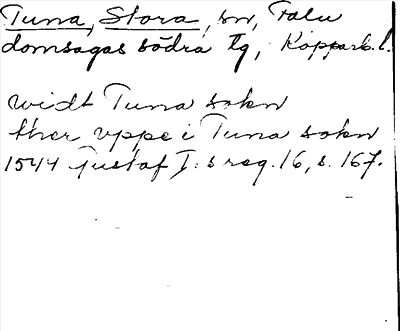 Tuna, Stora, sn, Falu
domsagas södra tg, Kopparb. l.
widt Tuna sokn
ther vppe i Tuna sokn
1544 Gustaf I:s reg. 16, s. 167.